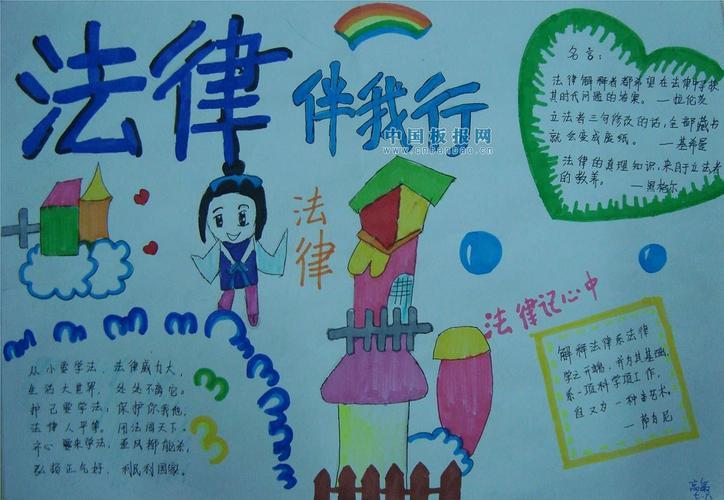 法律
伴我行
中国板报网
www.cnbanbao.cn
名言：
法律解释者都希望在法律中寻获
其时代问题的答案。 —拉伦茨
立法者三句修改的话，全部藏书
就会变成废纸。 —基希曼
法律的真理知识，来自于立法者
的教养。 —黑格尔
法律
法律记心中
从小要学法，法律威力大，
生活大世界，处处不离它。
自己要学法，保护你我他，
法律人平等。用法闯天下。
齐心要来学法，歪风都能杀，
弘扬正气好，利民利国家。
解释法律系法律
学之开端，并为其基础，
系一项科学项工作，
但又为一种艺术。
—萨维尼